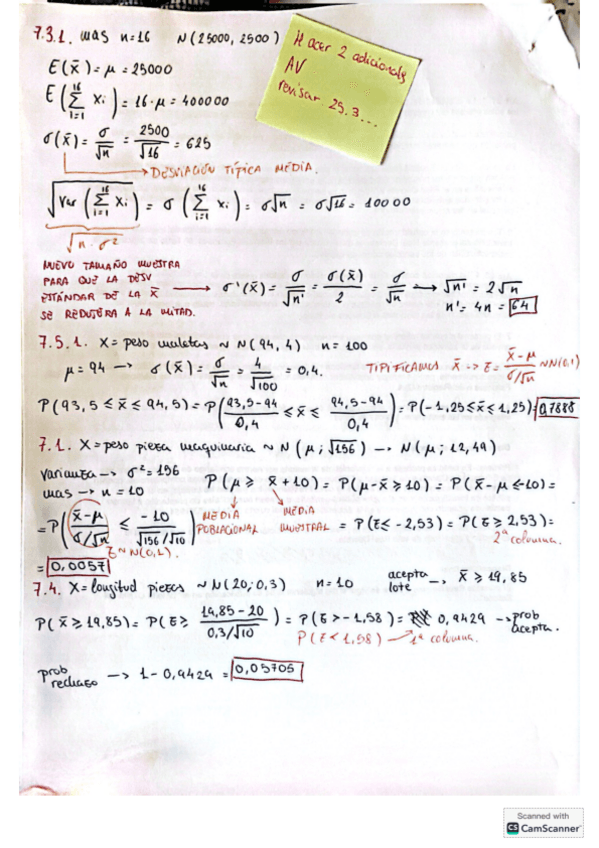 7.3.1. mas n=16 N(25000, 2500)
Hacer 2 adicionales
AV
revisar 25.3...
E(x̄) = μ = 25000
E(∑ᵢ₌₁¹⁶ xᵢ) = 16·μ = 400000
σ(x̄) = σ/√n = 2500/√16 = 625
→ DESVIACIÓN TÍPICA MEDIA.
√Var(∑ᵢ₌₁¹⁶ xᵢ) = σ(∑ᵢ₌₁¹⁶ xᵢ) = σ√n = σ√16 = 10000
√n·σ²
NUEVO TAMAÑO MUESTRA
PARA QUE LA DESV
ESTÁNDAR DE LA x̄ → σ'(x̄) = σ/√n' = σ(x̄)/2 = σ/√n → √n' = 2√n
SE REDUJERA A LA MITAD. n' = 4n = 64
7.5.1. X = peso maletas ~ N(94, 4) n = 100
μ = 94 → σ(x̄) = σ/√n = 4/√100 = 0,4. TIPIFICAMOS x̄ → z = x̄-μ/σ/√n ~ N(0,1)
P(93,5 ≤ x̄ ≤ 94,5) = P(93,5-94/0,4 ≤ x̄ ≤ 94,5-94/0,4) = P(-1,25 ≤ x̄ ≤ 1,25) = 0,7888
7.1. X = peso pieza maquinaria ~ N(μ; √156) → N(μ; 12,49)
varianza → σ² = 156
mas → n = 10 P(μ ≥ x̄ + 10) = P(μ-x̄ ≥ 10) = P(x̄-μ ≤ -10) =
= P(x̄-μ/σ/√n ≤ -10/√156/√10) MEDIA POBLACIONAL MEDIA MUESTRAL = P(z ≤ -2,53) = P(z ≥ 2,53) =
z ~ N(0,1). 2ª columna.
= 0,0057
7.4. X = longitud piezas ~ N(20; 0,3) n = 10 acepta lote → x̄ ≥ 19,85
P(x̄ ≥ 19,85) = P(z ≥ 19,85-20/0,3/√10) = P(z > -1,58) = 0,9429 → prob acepta.
P(z < 1,58) → 1ª columna.
prob rechazo → 1 - 0,9429 = 0,05705
Scanned with
CS CamScanner